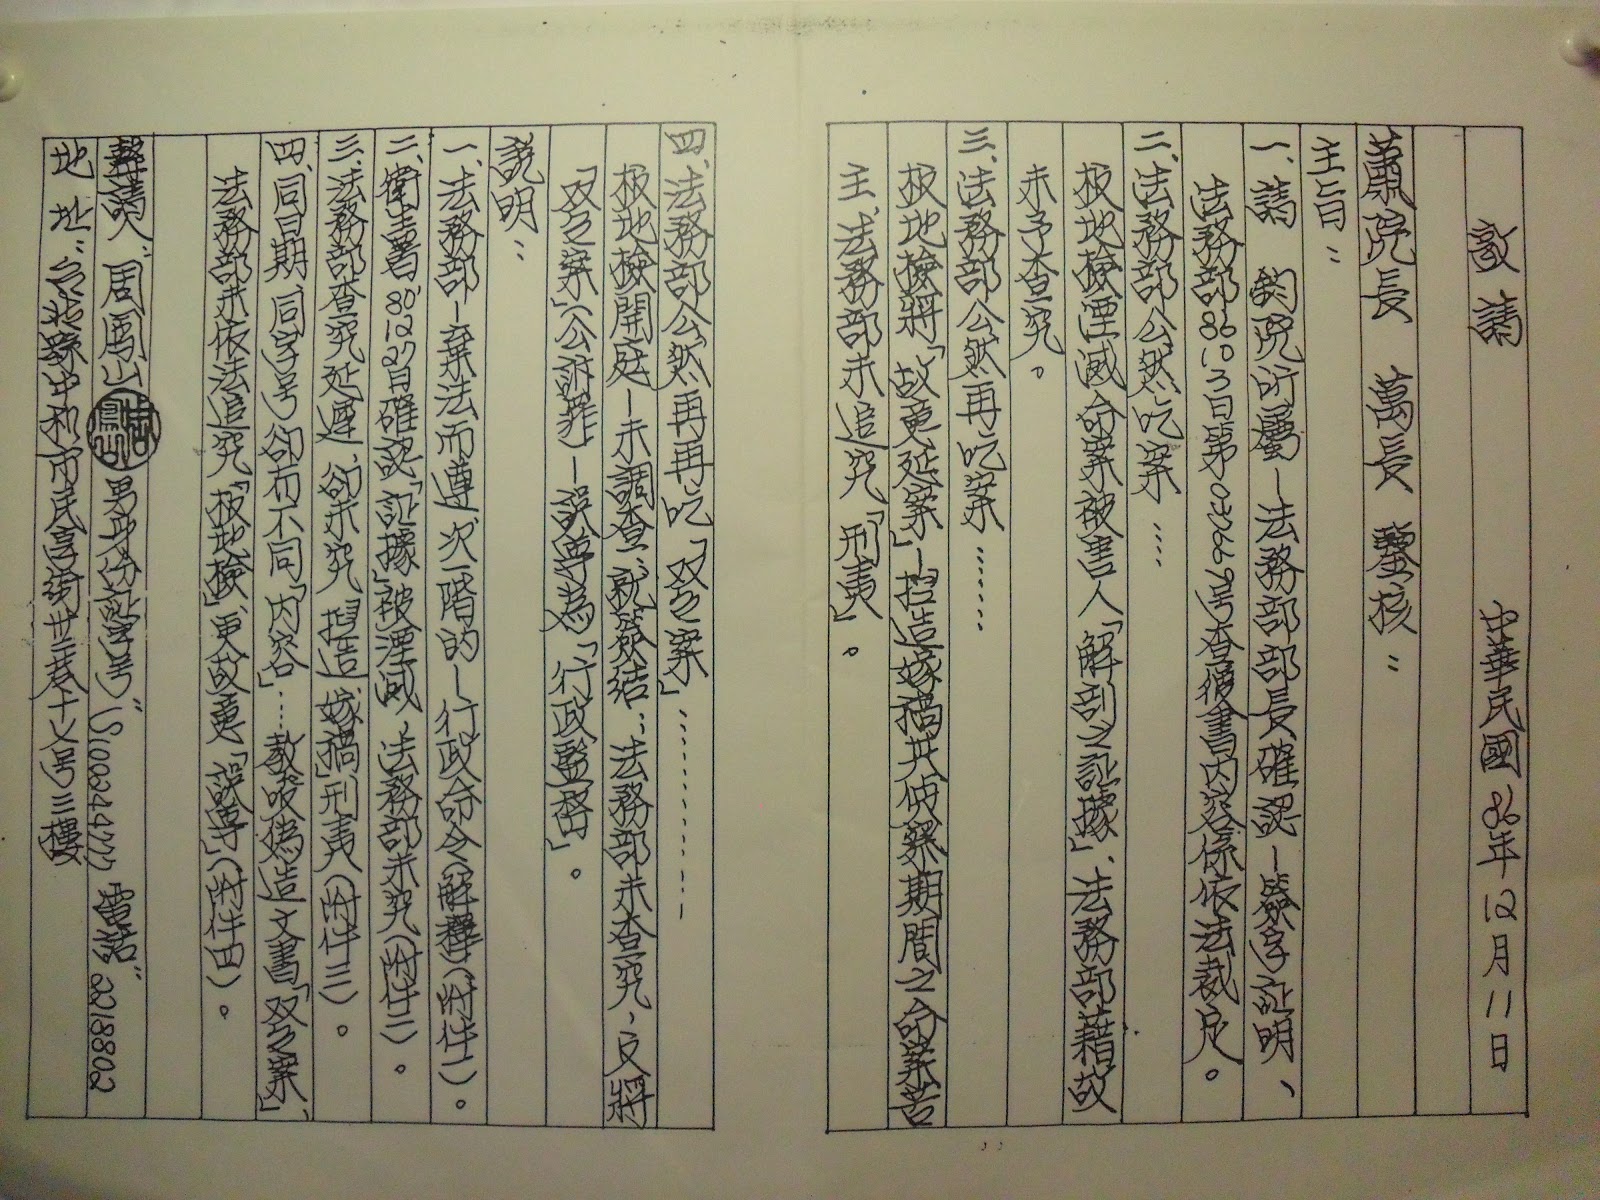 敬請　中華民國86年12月11日
蕭院長　萬長　鑒核：
主旨：
一、請　鈞院所屬—法務部部長確認—簽字証明、
法務部86.10.3日第032669號查復書內容係依法裁定。
二、法務部公然吃案‥‥
板地檢湮滅命案被害人「解剖之証據」、法務部藉故
未予查究。
三、法務部公然再吃案‥‥‥
板地檢將「故意延案」—捏造嫁禍其偵察期間之命案苦
主、法務部未追究「刑責」。
四、法務部公然再再吃「双包案」‥‥‥‥‥
板地檢開庭—未調查、就簽結…法務部未查究、反將
「双包案」（公訴罪）—誤導為「行政監督」。
說明：
一、法務部—棄法而遵次一階的—行政命令（解釋）（附件一）。
二、衛生署80.12.27日確認「証據」被湮滅、法務部未究（附件二）。
三、法務部查究延遲、卻未究「捏造、嫁禍」刑責（附件三）。
四、同日期、同字号、卻而不同「內容」……教唆偽造文書「双包案」、
法務部未依法追究「板地檢」、更故意「誤導」（附件四）。
聲請人：周鳳山　男身份証字号：電話：2218802
地　址：台北縣中和市民享街卅三巷十七号三樓